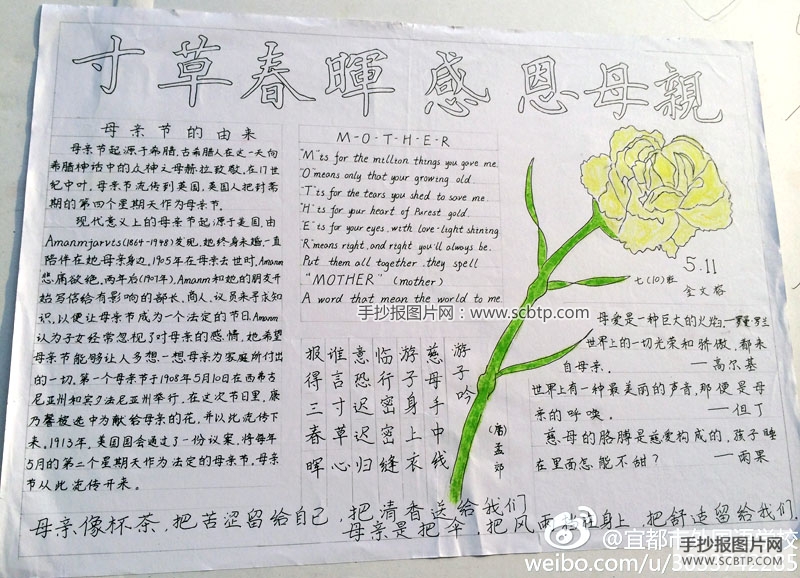 寸草春暉感恩母親
母亲节的由来
母亲节起源于希腊,古希腊人在这一天向
希腊神话中的众神之母赫拉致敬,在17世
纪中叶,母亲节流传到英国,英国人把封斋
期的第四个星期天作为母亲节。
现代意义上的母亲节起源于美国,由
Amanmjarvis(1864-1948)发现,她终身未婚,一直
陪伴在她母亲身边,1905年在母亲去世时,Amanm
悲痛欲绝,两年后(1907年),Amanm和她的朋友开
始写信给有影响的部长、商人、议员来寻求知
识,以便让母亲节成为一个法定的节日Amanm
认为子女经常忽视了对母亲的感情,她希望
母亲节能够让人多想一想母亲为家庭所付出
的一切。第一个母亲节于1908年5月10日在西弗吉
尼亚州和宾夕法尼亚州举行,在这次节日里,康
乃馨被选中为献给母亲的花,并以此流传下
来,1913年,美国国会通过了一份议案,将每年
5月的第二个星期天作为法定的母亲节,母亲
节从此流传开来。
M-O-T-H-E-R
"M"is for the million things you gave me
"O"means only that your growing old
"T"is for the tears you shed to save me
"H"is for your heart of Purest gold
"E"is for your eyes, with love-light shining
"R"means right,and right you'll always be.
Put them all together ,they spell
"MOTHER" (mother)
A word that mean the world to me
手抄报图片网:www.scbtp.com
游子吟
(唐)孟郊
慈母手中线
游子身上衣
临行密密缝
意恐迟迟归
谁言寸草心
报得三春晖
5.11
七(10)班
母爱是一种巨大的火焰,—罗曼·罗兰
世界上的一切光荣和骄傲,都来
自母亲。——高尔基
世界上有一种最美丽的声音,那便是母
亲的呼唤。——但丁
慈母的胳膊是慈爱构成的,孩子睡
在里面怎能不甜?——雨果
母亲像杯茶,把苦涩留给自己,把清香送给我们
母亲是把伞,把风雨挡在身上,把舒适留给我们.
手抄报图片网
www.scbtp.com